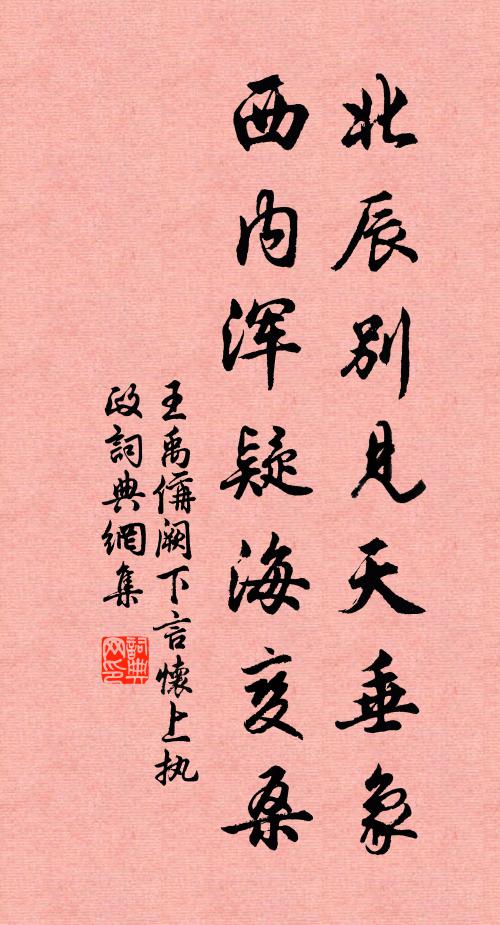 北辰别見天垂象
西内浑疑海变桑
王禹偁阙下言懷上执
政詞典網集
詞典
网印